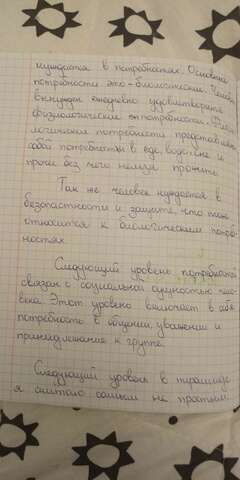 нуждается в потребностях. Основные
потребности это - биологические. Человек
вынужден ежедневно удовлетворять
физиологические потребности. Физио-
логические потребности представляют
собой потребности в еде, воде, сне и
проче без чего нельзя прожить.
Так же человек нуждается в
безопастности и защите, что тоже
относится к биологическим потреб-
ностям.
Следующий уровень потребностей
связан с социальная сущностью чело-
века. Этот уровень включает в себя
потребность в общении, уважении и
принадлежание к группе.
Следующий уровень в пирамиде
я считаю самым не простым.